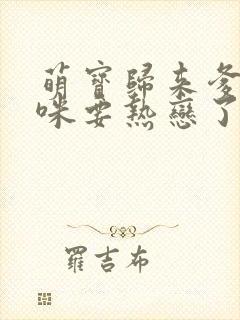 萌寶歸來爹
咪要熱戀了
羅吉布